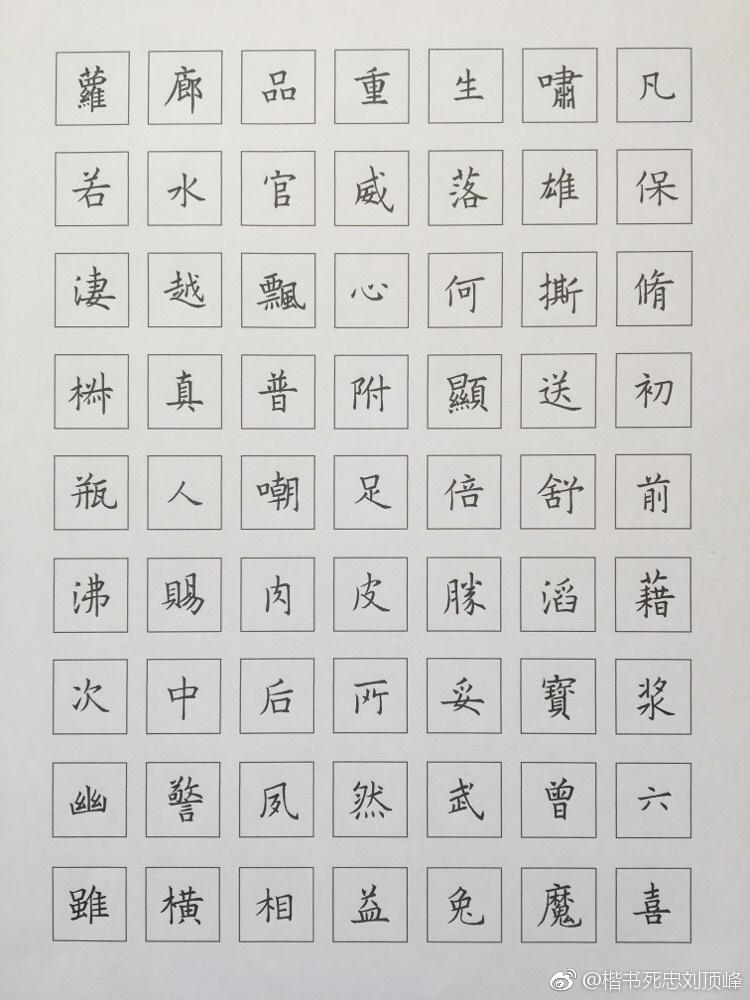 蘿廊品重生嘯凡
若水官威落雄保
淒越飄心何撕脩
真普附顯送初
瓶人嘲足倍舒前
沸賜肉皮勝滔藉
次中后所妥寶浆
幽警夙然武曾六
雖橫相益兔魔喜
@楷书死忠刘顶峰